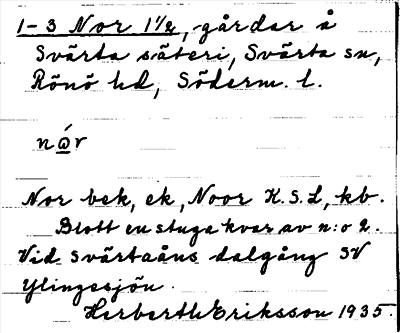 1-3 Nor 1½, gårdar å
Svärta säteri, Svärta sn,
Rönö hd, Söderm. l.
nǫ́r
Nor bek, ek, Noor K.S.L, kb.
Blott en stuga kvar av n:o 2.
Vid Svärtaåns dalgång SV
Ylingesjön.
Herbert Eriksson 1935.